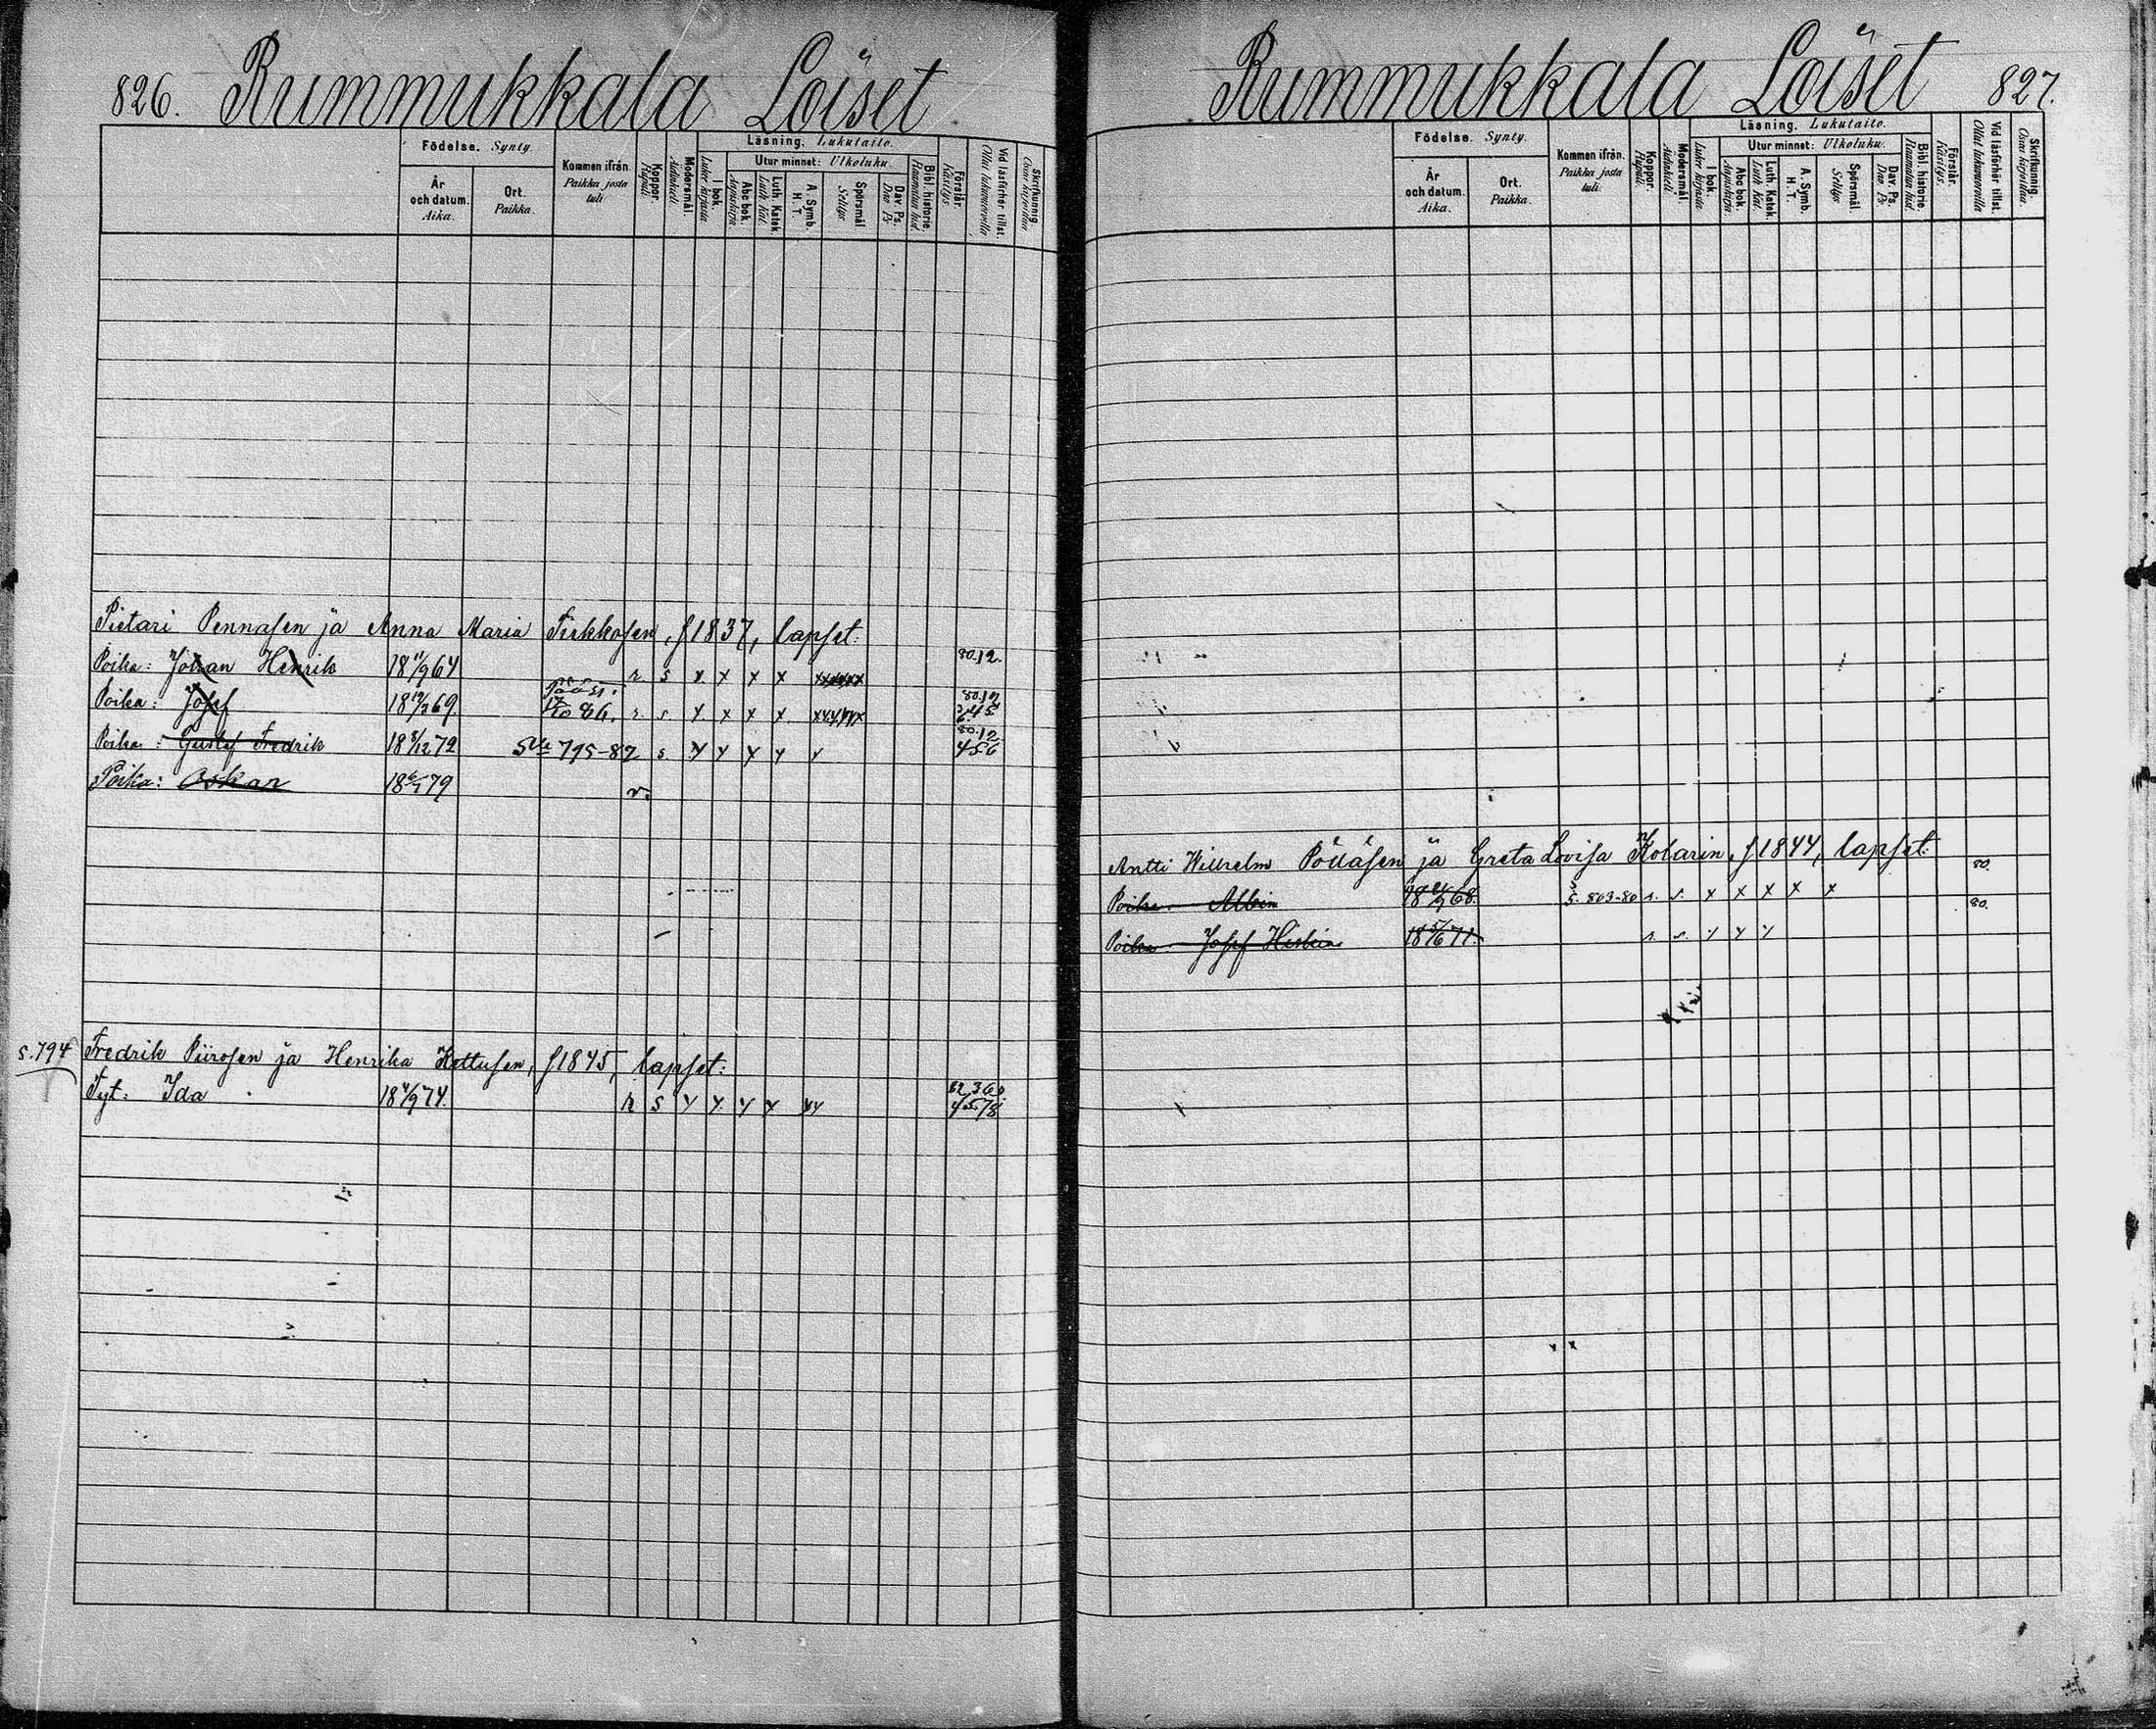 826. Rummukkala Loiset
Födelse. Synty.
År och datum. Aika.
Ort. Paikka.
Kommen ifrån. Paikka josta tuli
Koppor. Rupuli.
Modersmål. Äidinkieli
Läsning. Lukutaito.
I bok. Lukee kirjasta
Utur minnet: Ulkoluku.
Abc bok. Aapiskirja
Luth. Katek. Luth Kat.
A. Symb. H. T.
Spörsmål Selitys
Dav. Ps. Dav Ps.
Bibl. historie. Raamatun hist.
Förstår. Käsitys
Vid läsförhör tillst. Ollut lukuvuorolla
Skrifkunnig Osaa kirjoittaa
Pietari Pennasen ja Anna Maria Tirkkosen, f 1837, lapset:
80.12.
Poika: Johan Henrik 18 11/9 64 r s x x x x xxxxxx
Pääsi.
80.12
Poika: Josef 18 19/3 69 17/10 86. r. s x x x x xxxxxx
80.12
Poika: Gustaf Fredrik 18 8/12 72 Siv 795-82 s y y y y y 456
Poika: Oskar 18 6/7 79 r.
s. 794 Fredrik Piirosen ja Henrika Kettusen, f 1845, lapset:
82 360
Tyt: Ida 18 4/9 74. r s y y y y yy 4578
Rummukkala Loiset 827.
Födelse. Synty.
År och datum. Aika.
Ort. Paikka.
Kommen ifrån. Paikka josta tuli.
Koppor. Rupuli.
Modersmål. Äidinkieli.
Läsning. Lukutaito.
I bok. Lukee kirjasta
Utur minnet: Ulkoluku.
Abc bok. Aapiskirja
Luth. Katek. Luth Kat.
A. Symb. H. T.
Spörsmål. Selitys
Dav. Ps Dav Ps.
Bibl. historie. Raamatun hist.
Förstår. Käsitys.
Vid läsförhör tillst. Ollut lukuvuorolla
Skrifkunnig. Osaa kirjoittaa
Antti Wilhelm Pölläsen ja Greta Lovisa Kolarin, f 1844, lapset:
80.
Poika Albin 68. s. 803-80 r. s. x x x x x
80.
Poika Josef 18 5/6 71. r. s. y y y